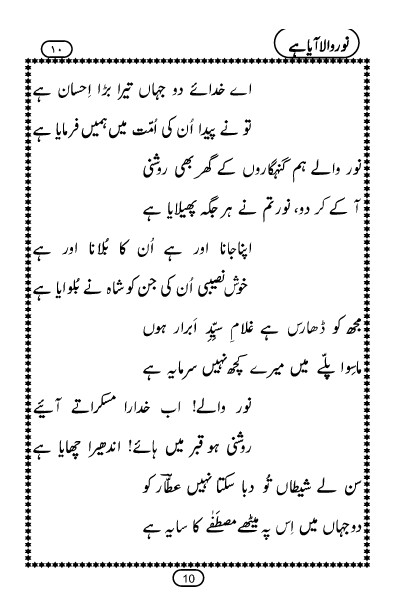 نور والا آیا ہے
۱۰
اے خدائے دو جہاں تیرا بڑا اِحسان ہے
تو نے پیدا اُن کی اُمّت میں ہمیں فرمایا ہے
نور والے ہم گنہگاروں کے گھر بھی روشنی
آ کے کر دو، نور تم نے ہر جگہ پھیلایا ہے
اپنا جانا اور ہے اُن کا بُلانا اور ہے
خوش نصیبی اُن کی جن کو شاہ نے بُلوایا ہے
مجھ کو ڈھارس ہے غلامِ سیِّدِ اَبرار ہوں
ماسِوا پلّے میں میرے کچھ نہیں سرمایہ ہے
نور والے! اب خدارا مسکراتے آئیے
روشنی ہو قبر میں ہائے! اندھیرا چھایا ہے
سن لے شیطاں تُو دبا سکتا نہیں عطاؔر کو
دو جہاں میں اِس پہ میٹھے مصطَفٰے کا سایہ ہے
10